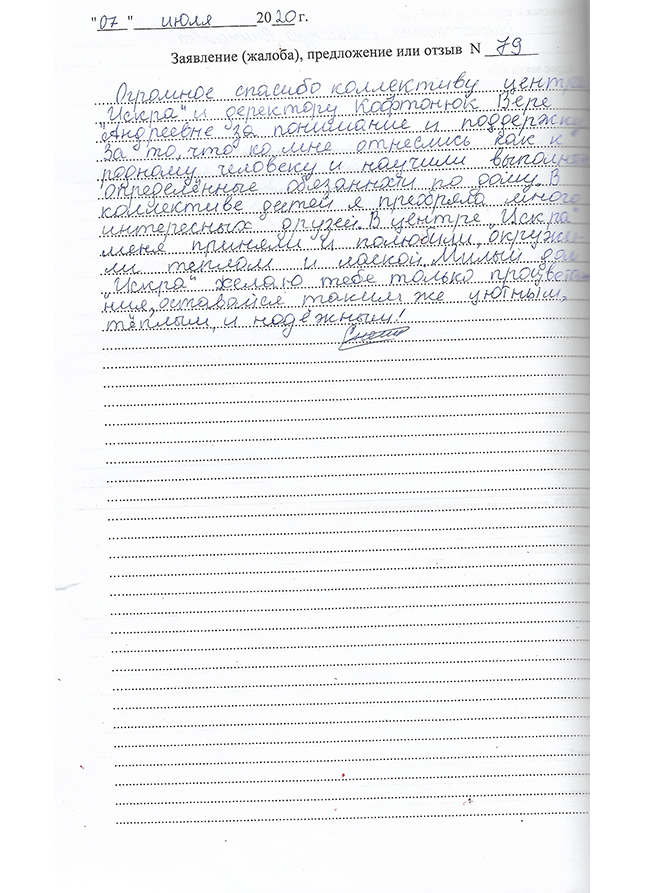 "07" июля 2020 г.
Заявление (жалоба), предложение или отзыв N 79
Огромное спасибо коллективу центра
"Искра" и деректору Кафтонюк Вере
"Андреевне" за понимание и поддержку
За то, что ко мне отнеслись как к
родному человеку и научили выполнять
определённые обязанности по дому. В
коллективе детей я преобрела много
интересных друзей. В центре „Искра"
меня приняли и полюбили, окружи-
ли теплом и лаской. Милый дом
„Искра" желаю тебе только процвета-
ния, оставайся таким же уютным,
тёплым, и надёжным!